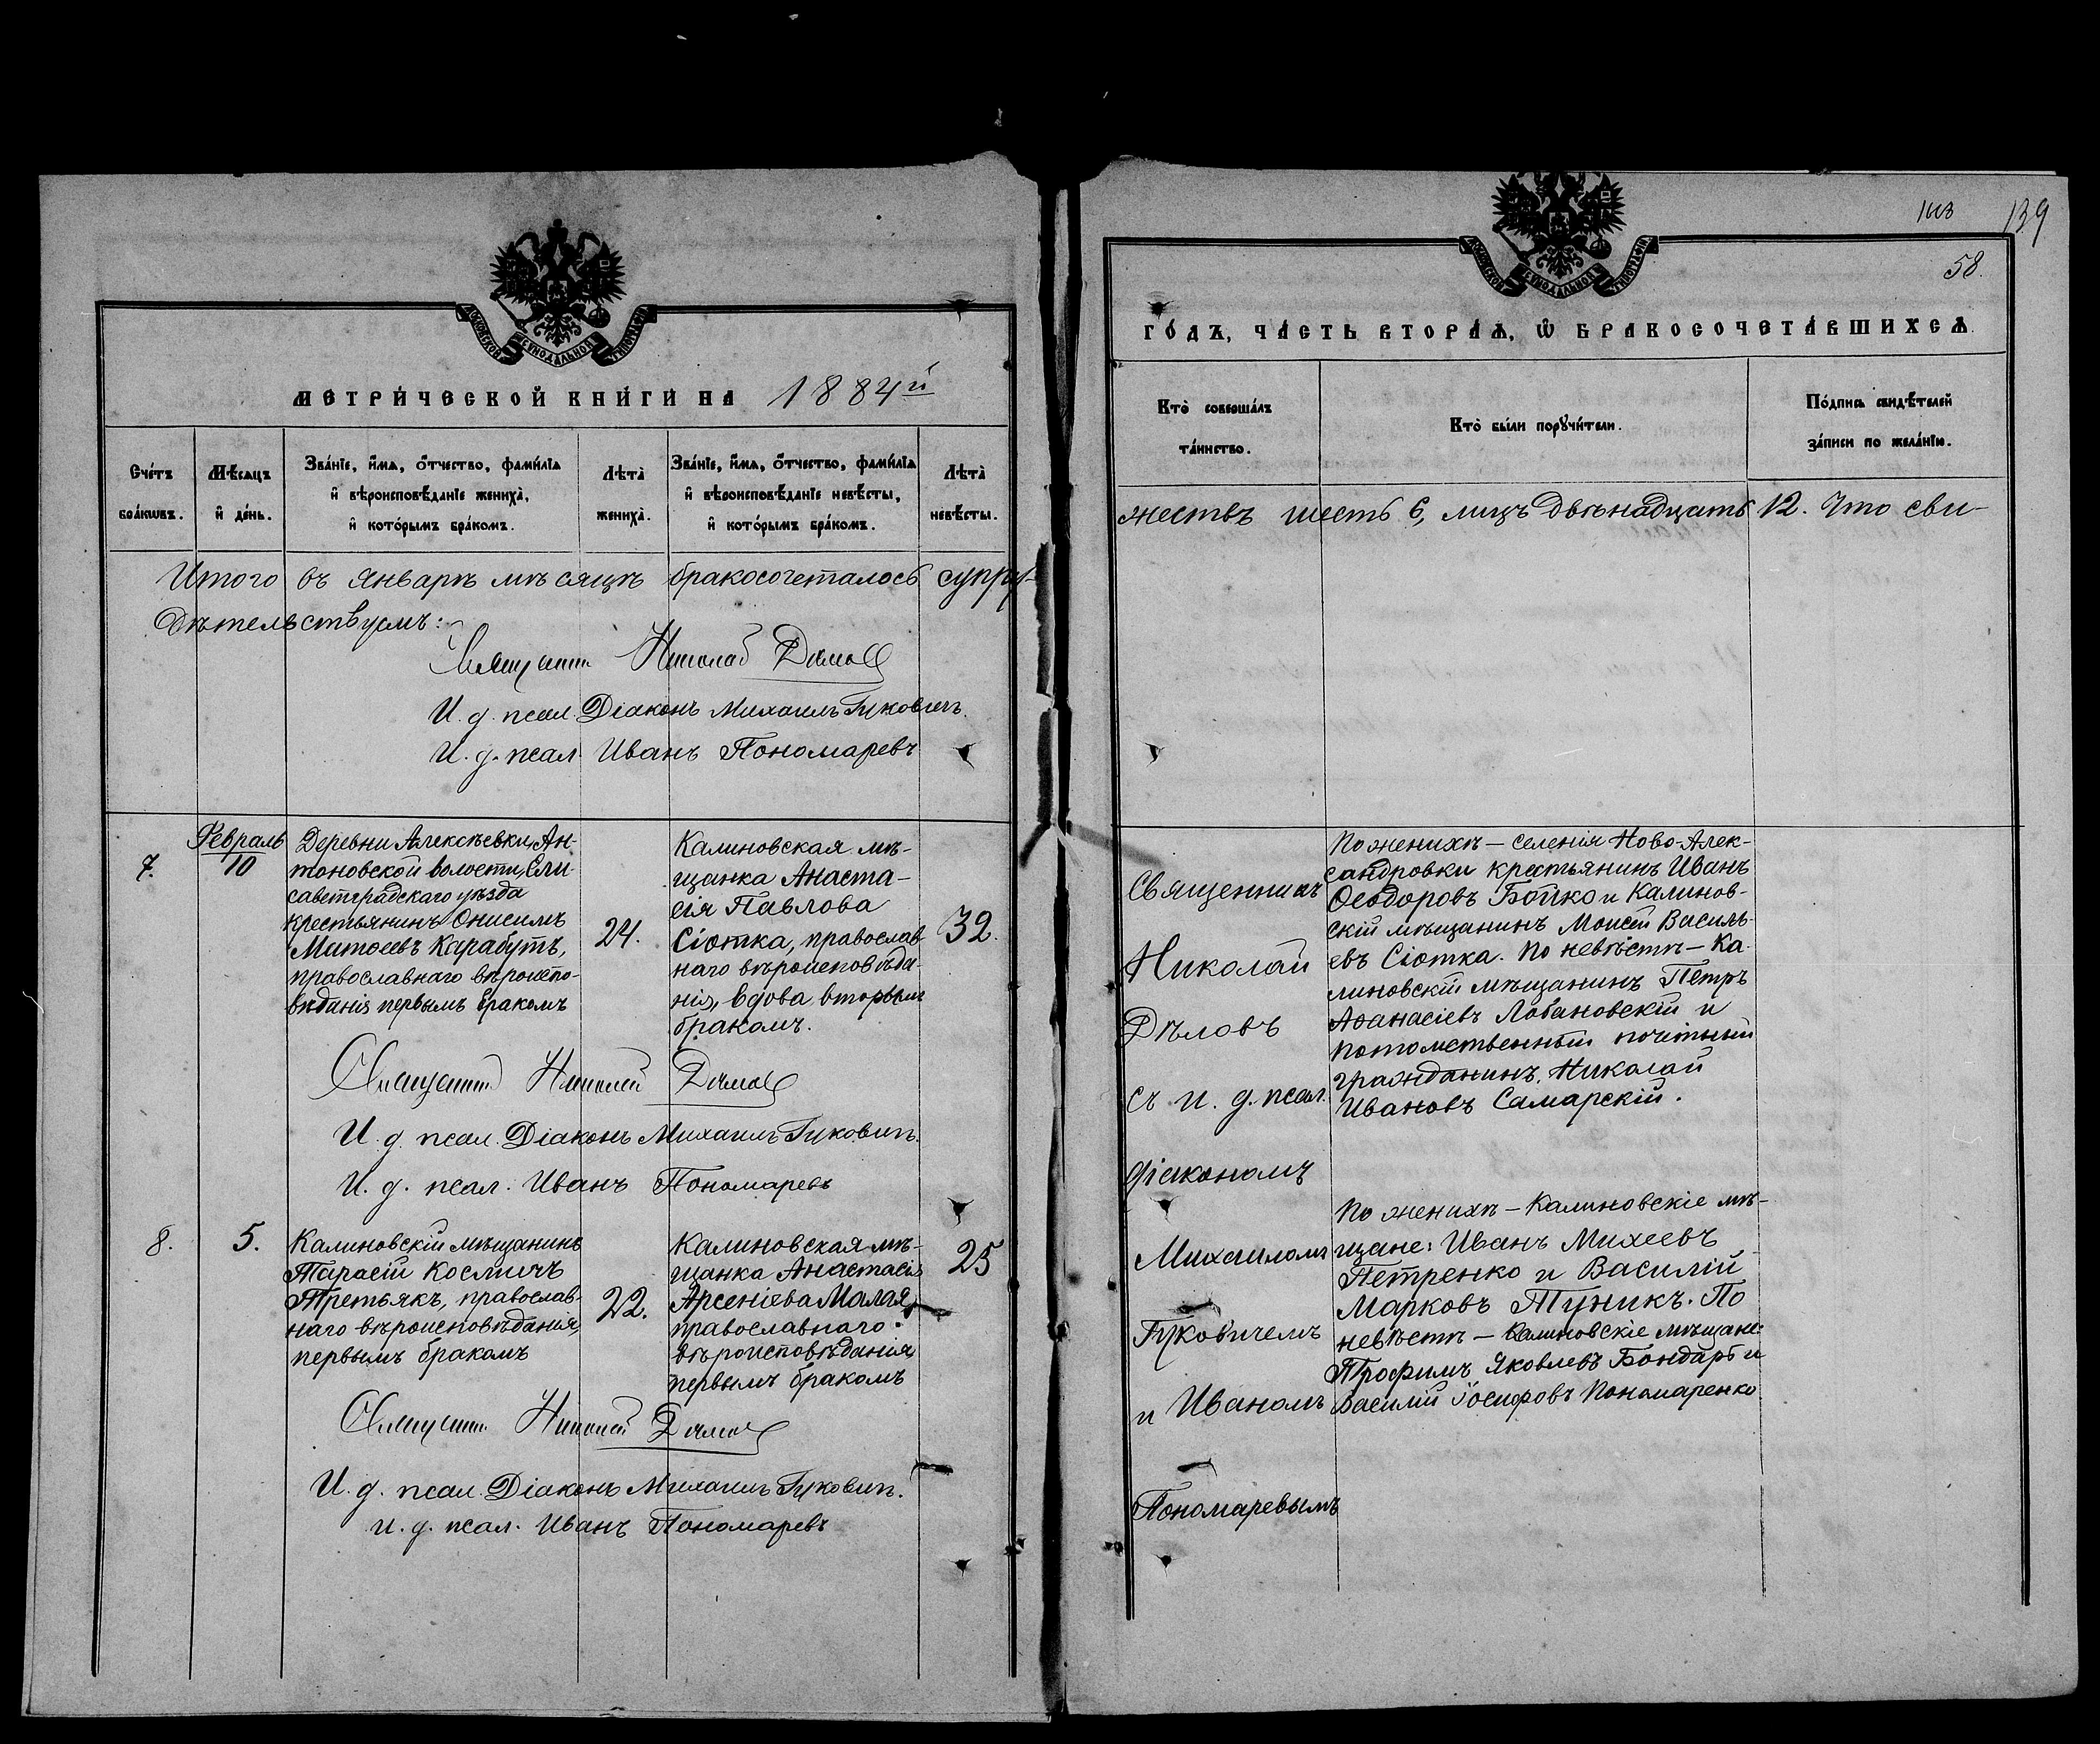 МЕТРИ́ЧЕСКОЙ КНИ́ГИ НА 1884й
Сче́тъ бра́кωвъ.
Мѣ́сяцъ и҆ де́нь.
Зва́нїе, и҆́мѧ, ѻ҆́тчество, фами́лїѧ и҆ вѣроисповѣ́данїе жениха̀, и҆ кото́рымъ бра́комъ.
Лѣта̀ жениха̀.
Зва́нїе, и҆́мѧ, ѻ҆́тчество, фами́лїѧ и҆ вѣроисповѣ́данїе невѣ́сты, и҆ кото́рымъ бра́комъ.
Лѣта̀ невѣ́сты.
Итого въ Январѣ мѣсяцѣ бракосочеталось супру-
дѣтельствуемъ:
Священникъ Николай Дѣловъ
И. д. псал. Діаконъ Михаилъ Гуковичъ.
И. д. псал. Иванъ Пономаревъ
7.
Февраль
10
Деревни Алексѣевки, Ан-
тоновской волости, Ели-
саветградскаго уѣзда
крестьянинъ Онисимъ
Матѳеевъ Карабутъ,
православнаго вѣроиспо-
вѣданія первымъ бракомъ
24.
Калиновская мѣ-
щанка Анаста-
сія Павлова
Сіотка, православ-
наго вѣроисповѣда-
нія, вдова, вторымъ
бракомъ.
32.
Священникъ Николай Дѣловъ
И. д. псал. Діаконъ Михаилъ Гуковичъ.
И. д. псал. Иванъ Пономаревъ
8.
5.
Калиновскій мѣщанинъ
Тарасій Космичъ
Третьякъ, православ-
наго вѣроисповѣданія,
первымъ бракомъ
22.
Калиновская мѣ-
щанка Анастасія
Арсеніева Малая,
православнаго
вѣроисповѣданія
первымъ бракомъ
25
Священникъ Николай Дѣловъ
И. д. псал. Діаконъ Михаилъ Гуковичъ.
И. д. псал. Иванъ Пономаревъ
139
58.
ГО́ДЪ, ЧА́СТЬ ВТОРА́Ѧ, Ѽ БРАКОСОЧЕТА́ВШИХСѦ.
Кто̀ соверша́лъ та́инство.
Кто̀ бы́ли порꙋчи́тели.
По́дпись свидѣ́телей за́писи по жела́нїю.
жествъ шесть 6, лицъ двѣнадцать 12. Что сви-
Священникъ
Николай
Дѣловъ
съ и. д. псал.
діакономъ
Михаиломъ
Гуковичемъ
и Иваномъ
Пономаревымъ
По женихѣ – селенія Ново-Алек-
сандровки крестьянинъ Иванъ
Ѳеодоровъ Бойко и Калинов-
скій мѣщанинъ Моисей Василь-
евъ Сіотка. По невѣстѣ – Ка-
линовскій мѣщанинъ Петръ
Аѳанасіевъ Лобановскій и
потомственный почетный
гражданинъ Николай
Ивановъ Самарскій.
По женихѣ – Калиновскіе мѣ-
щане: Иванъ Михеевъ
Петренко и Василій
Марковъ Туникъ. По
невѣстѣ – Калиновскіе мѣщане:
Трофимъ Яковлевъ Бондарь и
Василій Іосифовъ Пономаренко